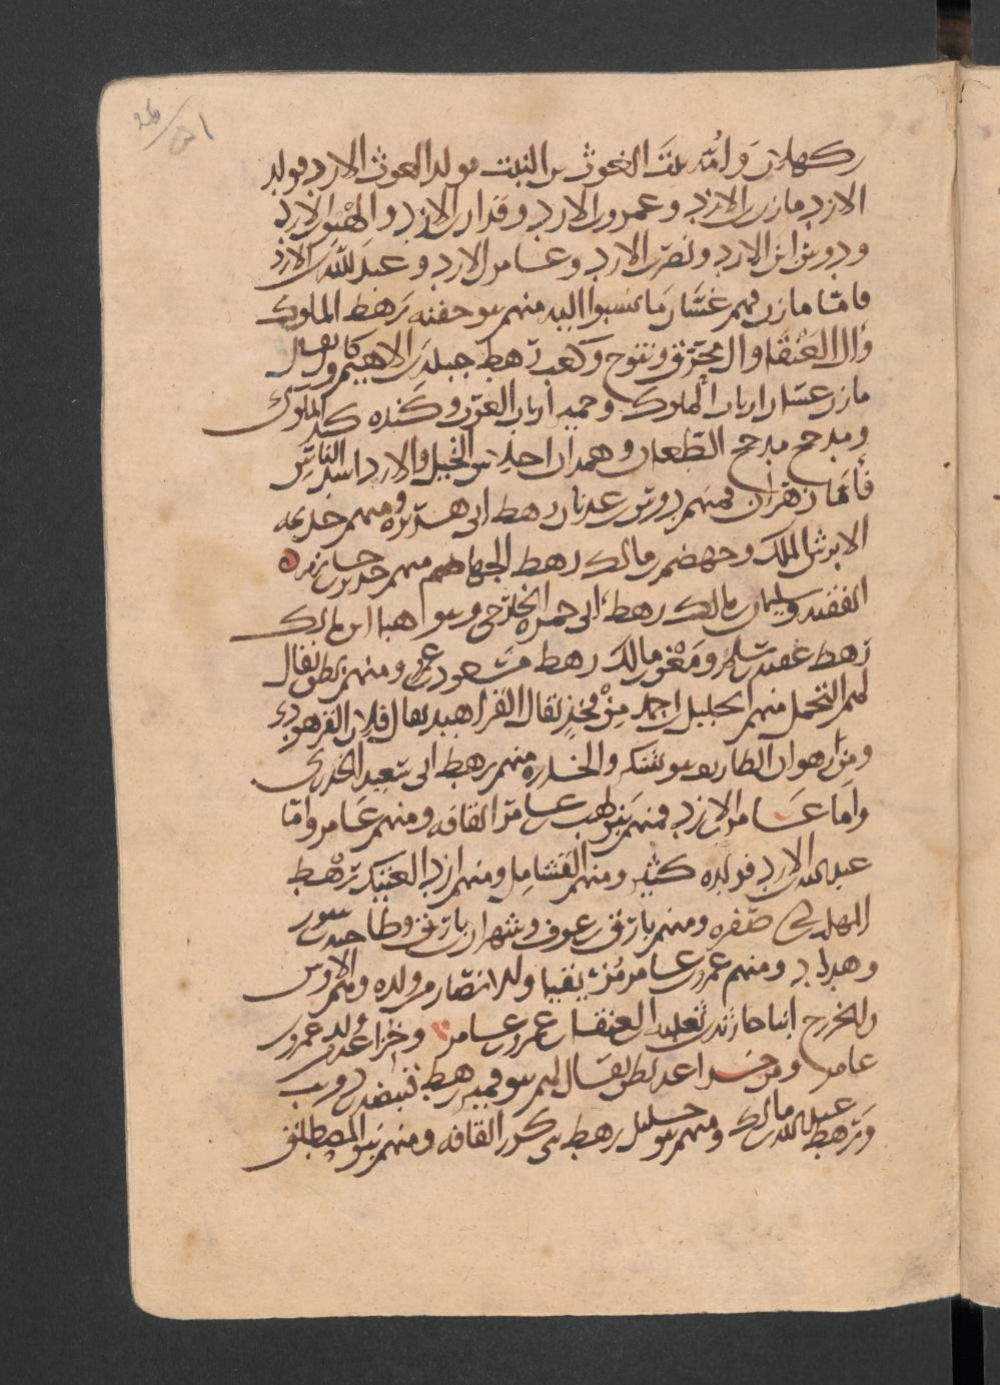 كهلان وامه بنت الغوث بن النبت فولد الغوث الازد فولد
الازد مازن بن الازد وعمرو بن الازد وقدار بن الازد والهنو بن الازد
ودوس ابن الازد ونصر بن الازد وعامر بن الازد وعبد الله بن الازد
فاما مازن فهم غسان وما نسبوا اليه منهم بنو جفنه رهط الملوك
وال العنقا وال محرق وتنوخ وكعب رهط جبله بن الايهم وكما يقال
مازن غسان ارباب الملوك وحمير ارباب العرب وكنده كند الملوك
ومدحج مدحج الطعان وهمدان احلاس الخيل والازد اسد الناس
فاما زهران فمنهم دوس بن عدنان رهط ابى هريره ومنهم جديمه
الابرش الملك وجهضم بن مالك رهط الجهاضم منهم
الفقيه وسليمان بن مالك رهط ابى حمزه الخارجى وبنو هبا ابن مالك
رهط عقبه بن سلم ومعن بن مالك رهط مسعود بن عمرو ومنهم بطن يقال
لهم منهم الخليل بن احمد من فخذ يقال الفراهيد يقال فلان الفرهودى
ومن زهران الطاريه بنو شكر والخدره منهم رهط ابى سعيد الخدرى
واما عامر بن الازد فمنهم بنو لهب بن عامر القافه ومنهم غامر واما
عبد الله بن الازد فولده كثير ومنهم القشامل ومنهم ازد العتيك رهط
المهلب بن ابى صفره ومنهم بارق بن عوف وشهران بن بارق وطاحيه بن سور
وهداد ومنهم عمرو بن عامر مزيقيا ولد الانصار من ولده ومنهم الاوس
والخزرج ابنا حارثه بن ثعلبه العنقا بن عمرو بن عامر وخزاعه ولد عمرو بن
عامر ومن خزاعه بطن يقال لهم بنو قمير رهط قبيصه بن ذويب
ورهط عبد الله بن مالك ومنهم بنو حليل رهط بنى كرز القافه ومنهم بنو المصطلق